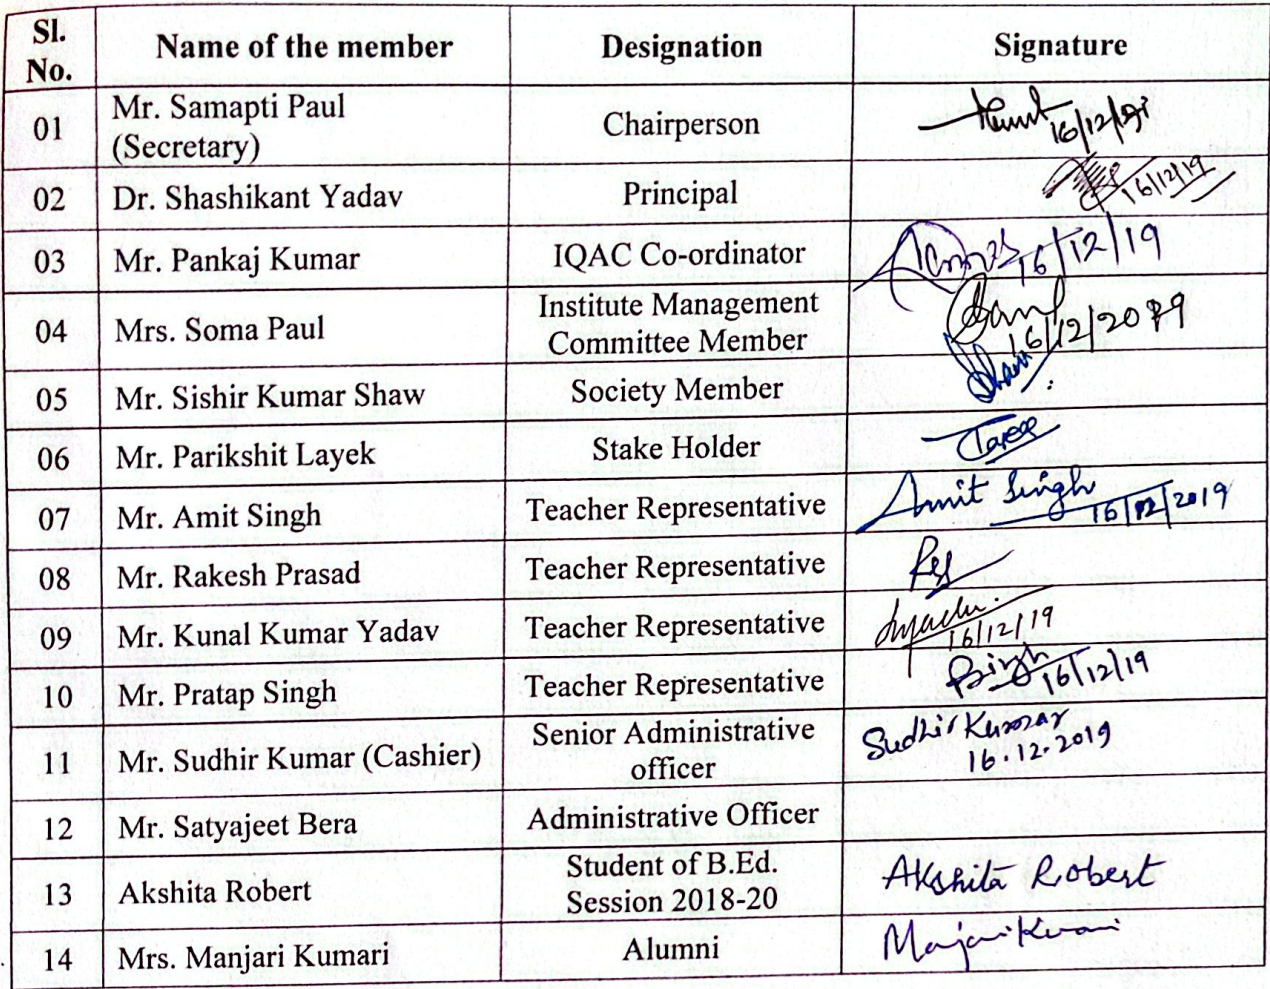 Sl. No. Name of the member Designation Signature
01 Mr. Samapti Paul (Secretary) Chairperson 16/12/
02 Dr. Shashikant Yadav Principal 16/12/19
03 Mr. Pankaj Kumar IQAC Co-ordinator 16/12/19
04 Mrs. Soma Paul Institute Management Committee Member 16/12/2019
05 Mr. Sishir Kumar Shaw Society Member
06 Mr. Parikshit Layek Stake Holder
07 Mr. Amit Singh Teacher Representative Amit Singh 16/12/2019
08 Mr. Rakesh Prasad Teacher Representative
09 Mr. Kunal Kumar Yadav Teacher Representative 16/12/19
10 Mr. Pratap Singh Teacher Representative PSingh 16/12/19
11 Mr. Sudhir Kumar (Cashier) Senior Administrative officer Sudhir Kumar 16.12.2019
12 Mr. Satyajeet Bera Administrative Officer
13 Akshita Robert Student of B.Ed. Session 2018-20 Akshita Robert
14 Mrs. Manjari Kumari Alumni Manjari Kumari